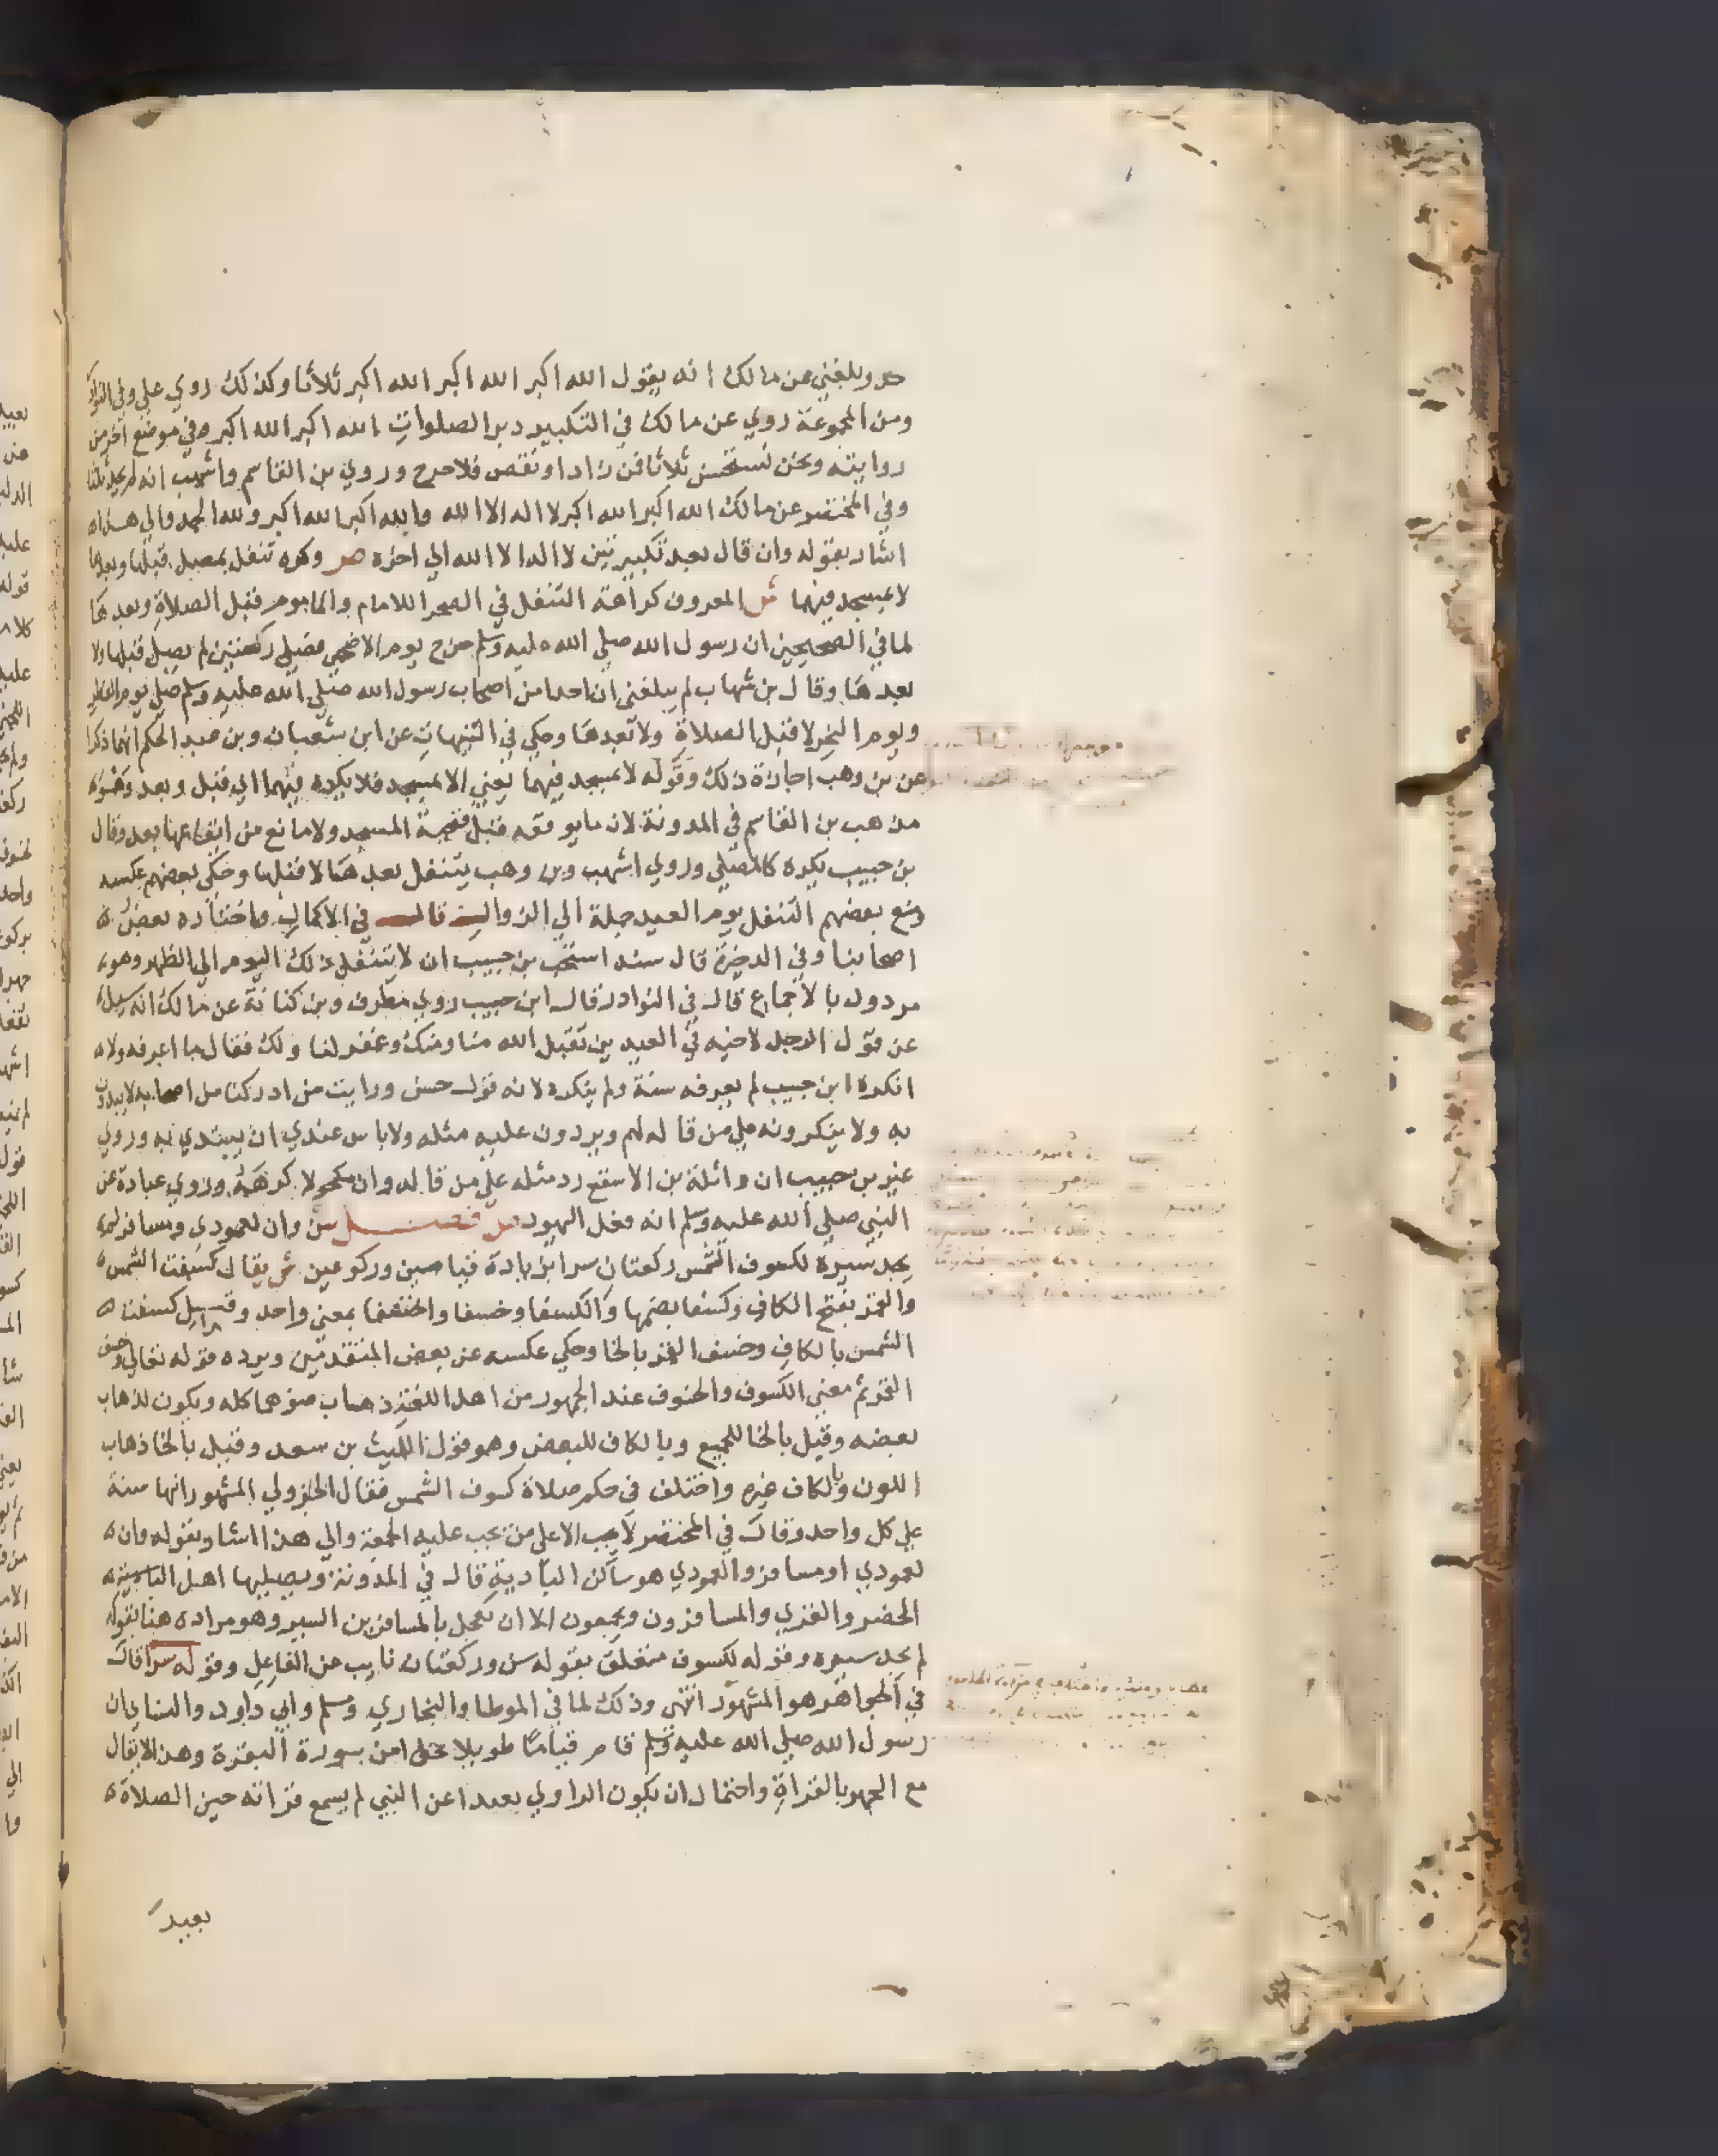 حد وبلغني عن مالك انه يقول الله اكبر الله اكبر الله اكبر ثلاثا وكذلك روي علي وفي النوادر
ومن المجموعة روي عن مالك في التكبير دبر الصلوات الله اكبر الله اكبر وفي موضع اخر من
روايته ونحن نستحسن ثلاثا فمن زاد او نقص فلا حرج وروي بن القاسم واشهب انه لم يحد ثلاثا
وفي المختصر عن مالك الله اكبر الله اكبر لا اله الا الله والله اكبر الله اكبر ولله الحمد والي هذا ه
اشار بقوله وان قال بعد تكبيرتين لا اله الا الله الي اخره ص وكره تنفل بمصلي قبلها وبعدها
لا بمسجد فيهما ش المعروف كراهة التنفل في الصحرا للامام والماموم قبل الصلاة وبعدها
لما في الصحيحين ان رسول الله صلي الله عليه وسلم خرج يوم الاضحي فصلي ركعتين لم يصل قبلها ولا
بعدها وقال بن شهاب لم يبلغني ان احدا من اصحاب رسول الله صلي الله عليه وسلم صلي يوم الفطر
ويوم النحر لا قبل الصلاة ولا بعدها وحكي في التنبيهات عن ابن شعبان وبن عبد الحكم انهما ذكرا
عن بن وهب اجازة ذلك وقوله لا بمسجد فيهما يعني الا بمسجد فلا يكره فيهما اي قبل وبعد وهو ه
مذهب بن القاسم في المدونة لان ما يوقعه قبل تحية المسجد ولا مانع من ايقاعها بعد وقال
بن حبيب يكره كالمصلي وروي اشهب وبن وهب يتنفل بعدها لا قبلها وحكي بعضهم عكسه
ومنع بعضهم التنفل يوم العيد جملة الي الزوال قال في الاكمال واختاره بعض ه
اصحابنا وفي الذخيرة قال سند استحب بن حبيب ان لا يتنفل ذلك اليوم الي الظهر وهو ه
مردود بالاجماع قال في النوادر قال ابن حبيب روي مطرف وبن كنانة عن مالك انه سيل ه
عن قول الرجل لاخيه في العيدين تقبل الله منا ومنك وغفر لنا ولك فقال ما اعرفه ولا ه
انكره ابن حبيب لم يعرفه سنة ولم ينكره لانه قول حسن ورايت من ادركنا من اصحابه لا يبدون
به ولا ينكرونه علي من قاله لهم ويردون عليه مثله ولا باس عندي ان يبتدي به وروي
غير بن حبيب ان واثلة بن الاسقع رد مثله علي من قاله وان مكحولا كرهه وروي عبادة عن
النبي صلي الله عليه وسلم انه فعل اليهود ص فصل سن وان لعمودي ومسافر لم ه
يجد سيره لكسوف الشمس ركعتان سرا بزيادة قيامين وركوعين ش يقال كسفت الشمس ه
والقمر بفتح الكاف وكسفا بضمها وانكسفا وخسفا وانخسفا بمعني واحد وقيل كسفت ه
الشمس بالكاف وخسف القمر بالخا وحكي عكسه عن بعض المتقدمين ويرده قوله تعالي وخسف
القمر ثم معني الكسوف والخسوف عند الجمهور من اهل اللغة ذهاب ضوهما كله ويكون لذهاب
بعضه وقيل بالخا للجميع وبالكاف للبعض وهو قول الليث بن سعد وقيل بالخا ذهاب
اللون وبالكاف غيره واختلف في حكم صلاة كسوف الشمس فقال الجزولي المشهور انها سنة
علي كل واحد وقال في المختصر لا يجب الا علي من تجب عليه الجمعة والي هذا اشار بقوله وان ه
لعمودي او مسافر والعمودي هو ساكن البادية قال في المدونة ويصليها اهل البادية ه
الحضر والقري والمسافرون ويجمعون الا ان يعجل بالمسافرين السير وهو مراده هنا بقوله
لم يجد سيره وقوله لكسوف متعلق بقوله سن وركعتان نايب عن الفاعل وقوله سرا قال
في الجواهر هو المشهور انتهي وذلك لما في الموطا والبخاري ومسلم وابي داود والنساي ان
رسول الله صلي الله عليه وسلم قام قياما طويلا نحوا من سورة البقرة وهذا لا يقال
مع الجهر بالقراة واحتمال ان يكون الراوي بعيدا عن النبي لم يسمع قراته حين الصلاة ه
بعيد